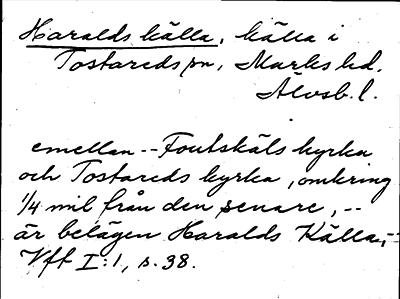 Haralds källa, källa i
Tostareds sn, Marks hd.
Älvsb. l.
emellan -- Foutskäls kyrka
och Tostareds kyrka, omkring
1/4 mil från den senare, --
är belägen Haralds Källa, --
Vff I:1, s. 38.